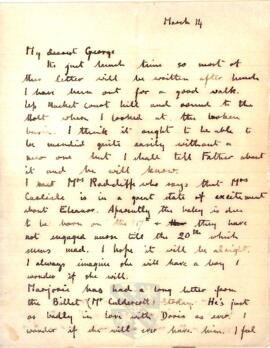 March 14
My dearest George
Its just lunch time so most of
this letter will be written after lunch
I have been out for a good walk.
Up Hurtket court hill and round to the
Holt when I looked at the broken
basin. I think it ought to be able to
be mended quite easily without a
new one but I shall tell Father about
it and he will know.
I met Mrs Radcliffe who says that Mrs
Carlisle is in a great state of excitement
about Eleanor. Aparently the baby is due
to be born on the they have
not engaged nurse till the 20th which
seems mad. I hope it will be alright.
I always imagine she will have a boy I
wonder if she will.
Marjorie has had a long letter from
the Billet (Mr Caldecott) today. He's just
as badly in love with Doris as ever. I
wonder if she will ever have him. I feel